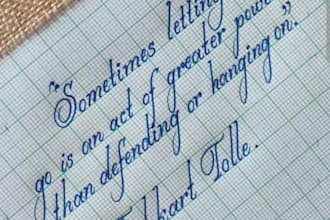 "Sometimes letting
go is an act of greater power
than defending or hanging on."
Tolle.